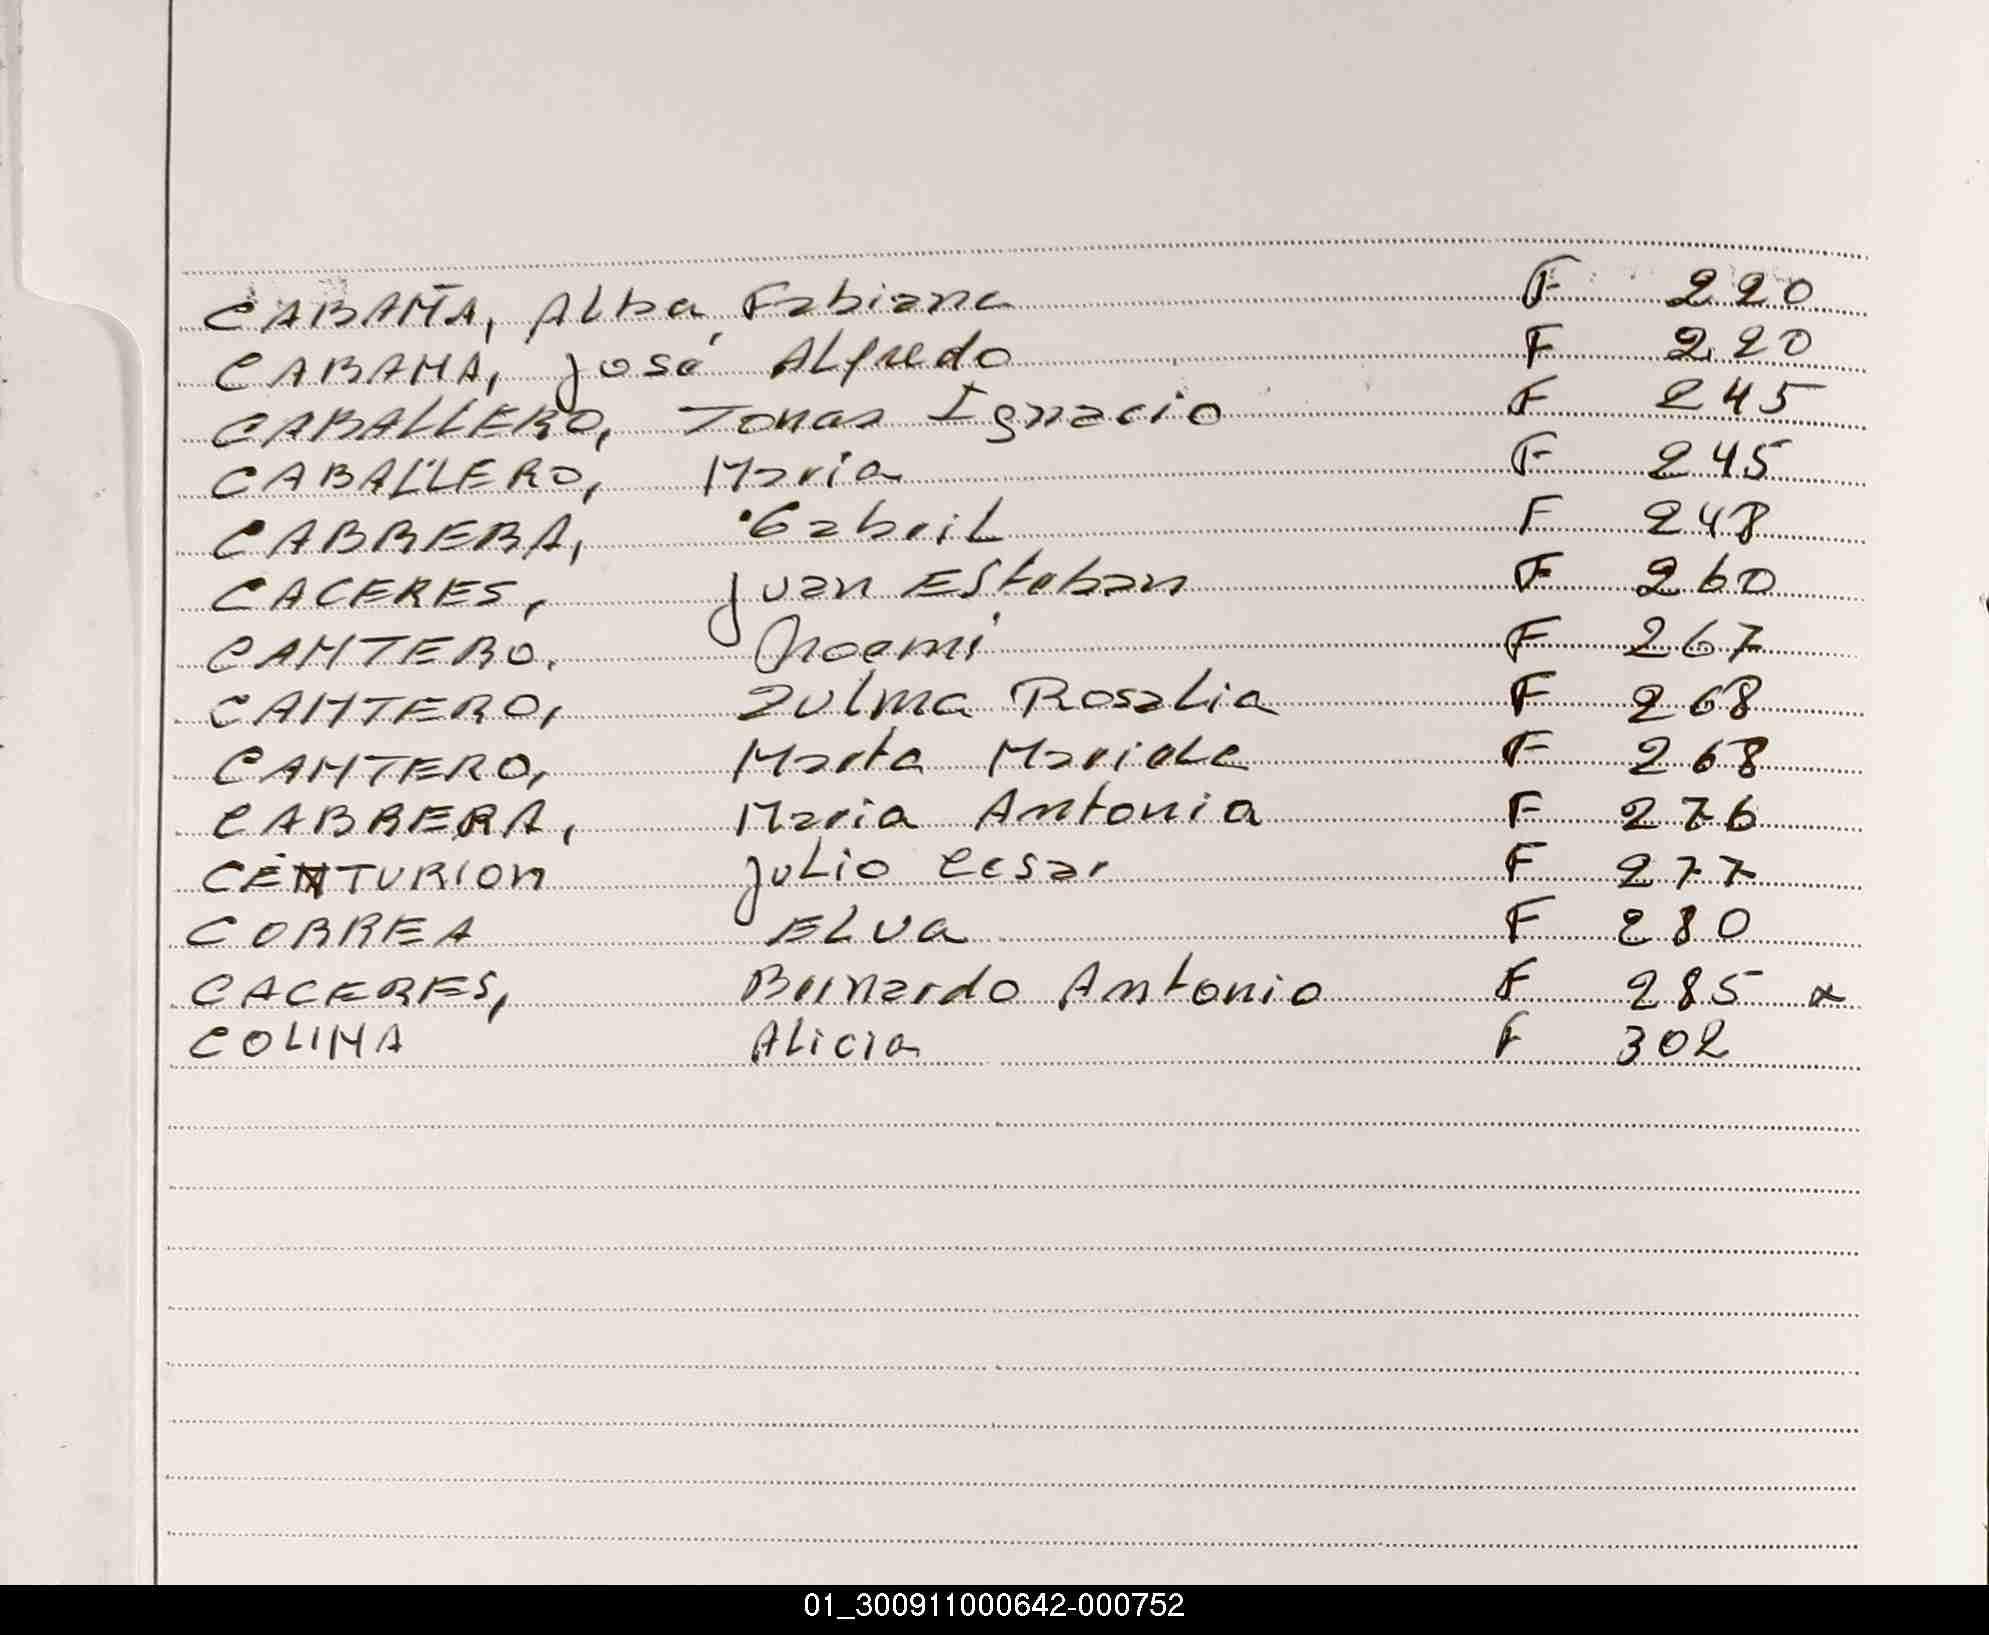 CABAÑA, Alba Fabiana F 220
CABAÑA, José Alfredo F 220
CABALLERO, Tomas Ignacio F 245
CABALLERO, Maria F 245
CABRERA, Gabril F 248
CACERES, Juan Esteban F 260
CANTERO. Noemi F 267
CANTERO, Zulma Rosalia F 268
CANTERO, Marta Mariela F 268
CABRERA, Maria Antonia F 276
CENTURION Julio Cesar F 277
CORREA ELva F 280
CACERES, Bernardo Antonio F 285
COLINA Alicia F 302
01_300911000642-000752